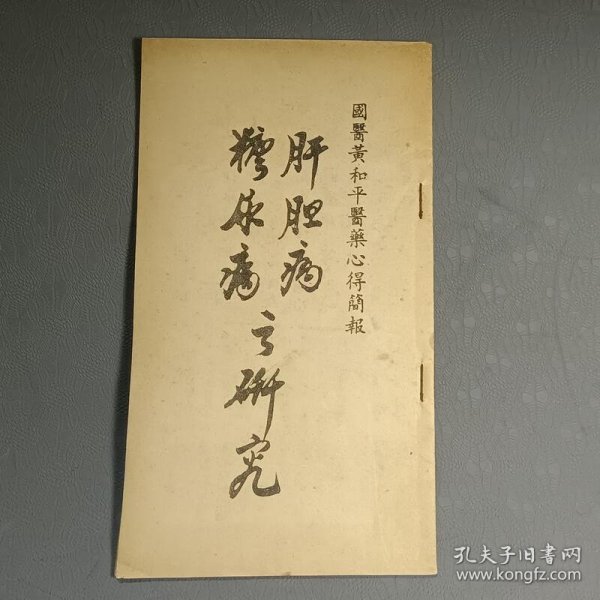 國醫黃和平醫藥心得簡報
肝胆病
糖尿病
之研究
孔夫子旧书网
www.kongfz.com